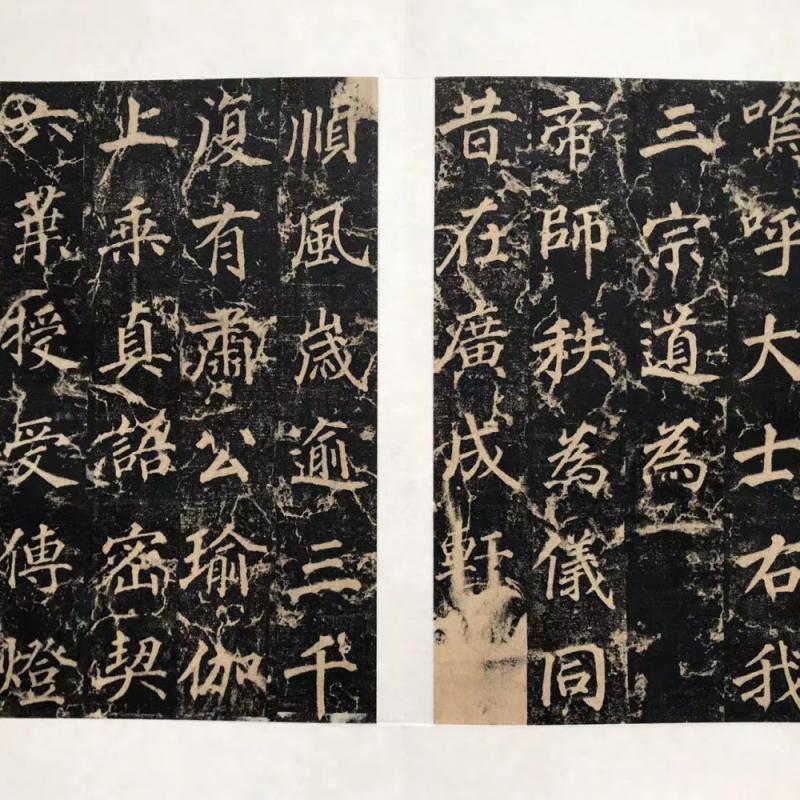 嗚呼大士右我
三宗道為
帝師秩為儀同
昔在廣成軒
順風歲逾三千
復有肅公瑜伽
上乘真語密契
六葉授受傳燈